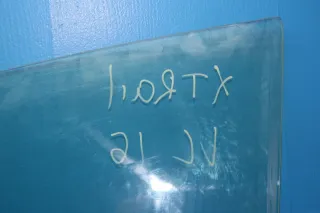 XTRail
VL 16